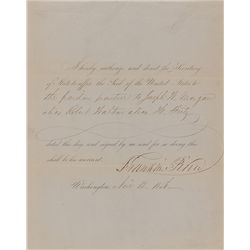 I hereby authorize and direct the Secretary
of State to affix the Seal of the United States to
the pardon of Joseph W. Morgan
alias Robert Walton alias H.
dated this day and signed by me and for so doing this
shall be his warrant.
Franklin Pierce
Washington, Nov 13,